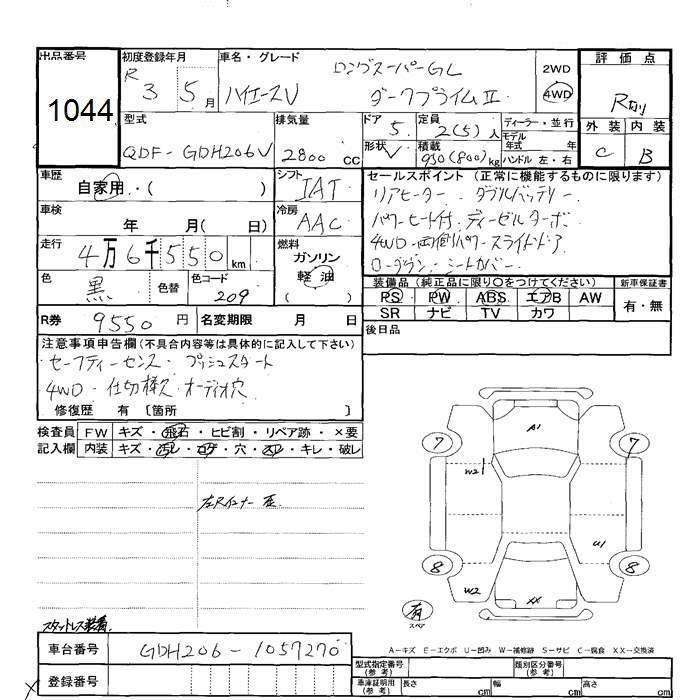 出品番号
1044
初度登録年月
R 3 5月
車名・グレード
ロングスーパーGL
ハイエースV ダークプライムⅡ
2WD
4WD
評価点
R
外装 内装
C B
型式
QDF-GDH206V
排気量
2800 cc
ドア 5
形状 V
定員 2(5)人
積載 930(800)kg
ディーラー・並行
モデル年式 年
ハンドル 左・右
車歴
自家用・( )
シフト
IAT
車検
年 月( 日)
冷房
AAC
走行
4万6千550km
燃料
ガソリン
軽油
色
黒
色替
色コード
209
セールスポイント (正常に機能するものに限ります)
リアヒーター ダブルバッテリー
パワーヒート付 ディーゼルターボ
4WD・両側パワースライドドア
シートカバー
装備品 (純正品に限り○をつけてください)
新車保証書
PS PW ABS エアB AW
SR ナビ TV カワ
有・無
R券 9550円
名変期限 月 日
後日品
注意事項申告欄(不具合内容等は具体的に記入して下さい)
セーフティーセンス・プッシュスタート
4WD・仕切棒穴・オーディオ穴
修復歴 有 〔箇所 〕
検査員
記入欄
FW キズ・飛石・ヒビ割・リペア跡・×要
内装 キズ・汚レ・コゲ・穴・スレ・キレ・破レ
左Rインナー 歪
A1
7
7
W2
U1
8
8
W2
XX
有
スペア
スタットレス装着
A-キズ E-エクボ U-凹み W-補修跡 S-サビ C-腐食 XX-交換済
車台番号
GDH206-1057270
登録番号
型式指定番号(参考)
類別区分番号(参考)
車庫証明用(参考)
長さ cm 幅 cm 高さ cm